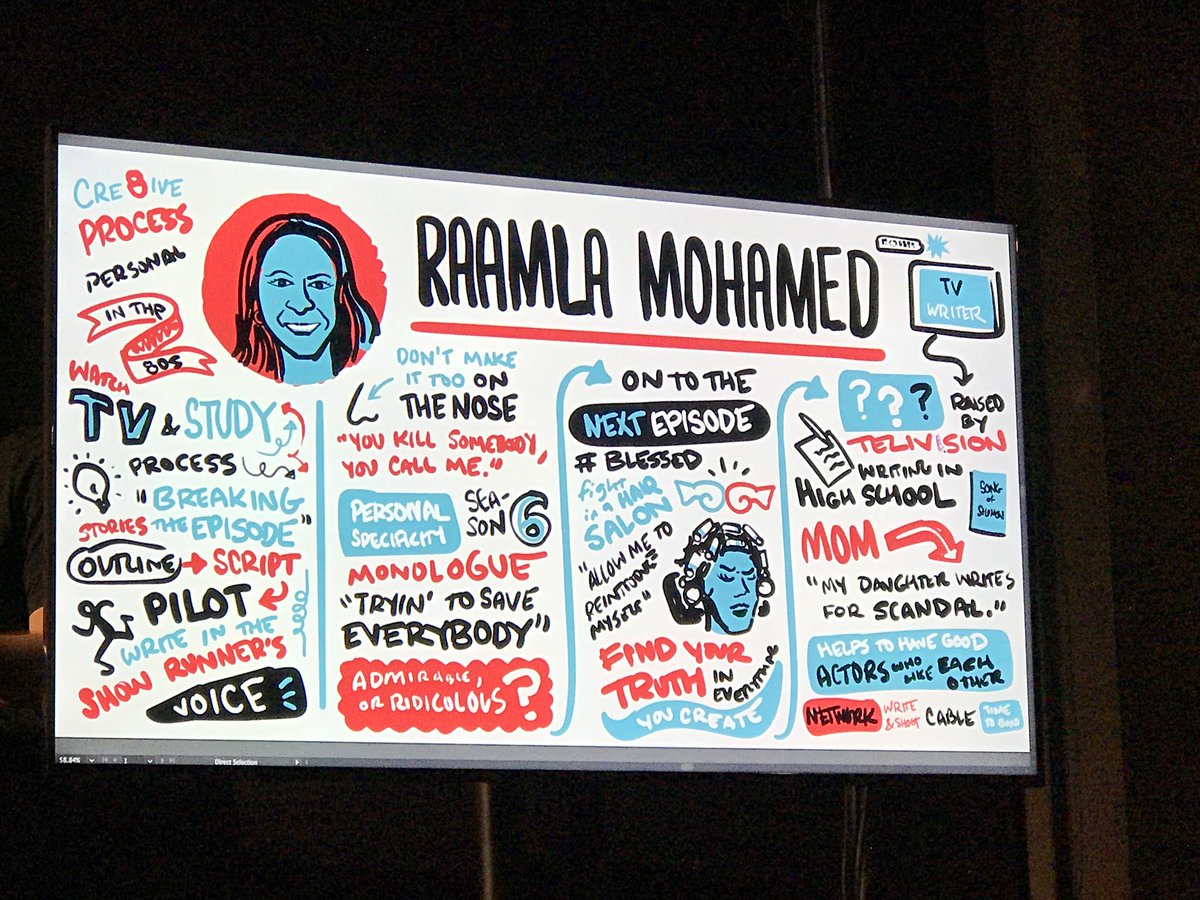 CRE8IVE
PROCESS
PERSONAL
IN THE
80S
RAAMLA MOHAMED
TV
WRITER
WATCH
TV & STUDY
PROCESS
"BREAKING
STORIES THE EPISODE"
OUTLINE → SCRIPT
PILOT
WRITE IN THE
SHOW RUNNER'S
VOICE
DON'T MAKE
IT TOO ON
THE NOSE
"YOU KILL SOMEBODY,
YOU CALL ME."
PERSONAL
SPECIFICITY
SEA-
SON 6
MONOLOGUE
"TRYIN' TO SAVE
EVERYBODY"
ADMIRABLE,
OR RIDICOLOUS?
ON TO THE
NEXT EPISODE
# BLESSED
fight
in a HAIR
SALON
"ALLOW ME TO
REINTRODUCE
MYSELF"
FIND YOUR
TRUTH IN
EVERYTHING
YOU CREATE
? ? ?
RAISED
BY
TELIVISION
WRITING IN
HIGH SCHOOL
SONG
OF
MOM
"MY DAUGHTER WRITES
FOR SCANDAL."
HELPS TO HAVE GOOD
ACTORS WHO LIKE EACH
OTHER
NETWORK WRITE
& SHOOT CABLE TIME
TO BUILD
58.84%
1
Direct Selection